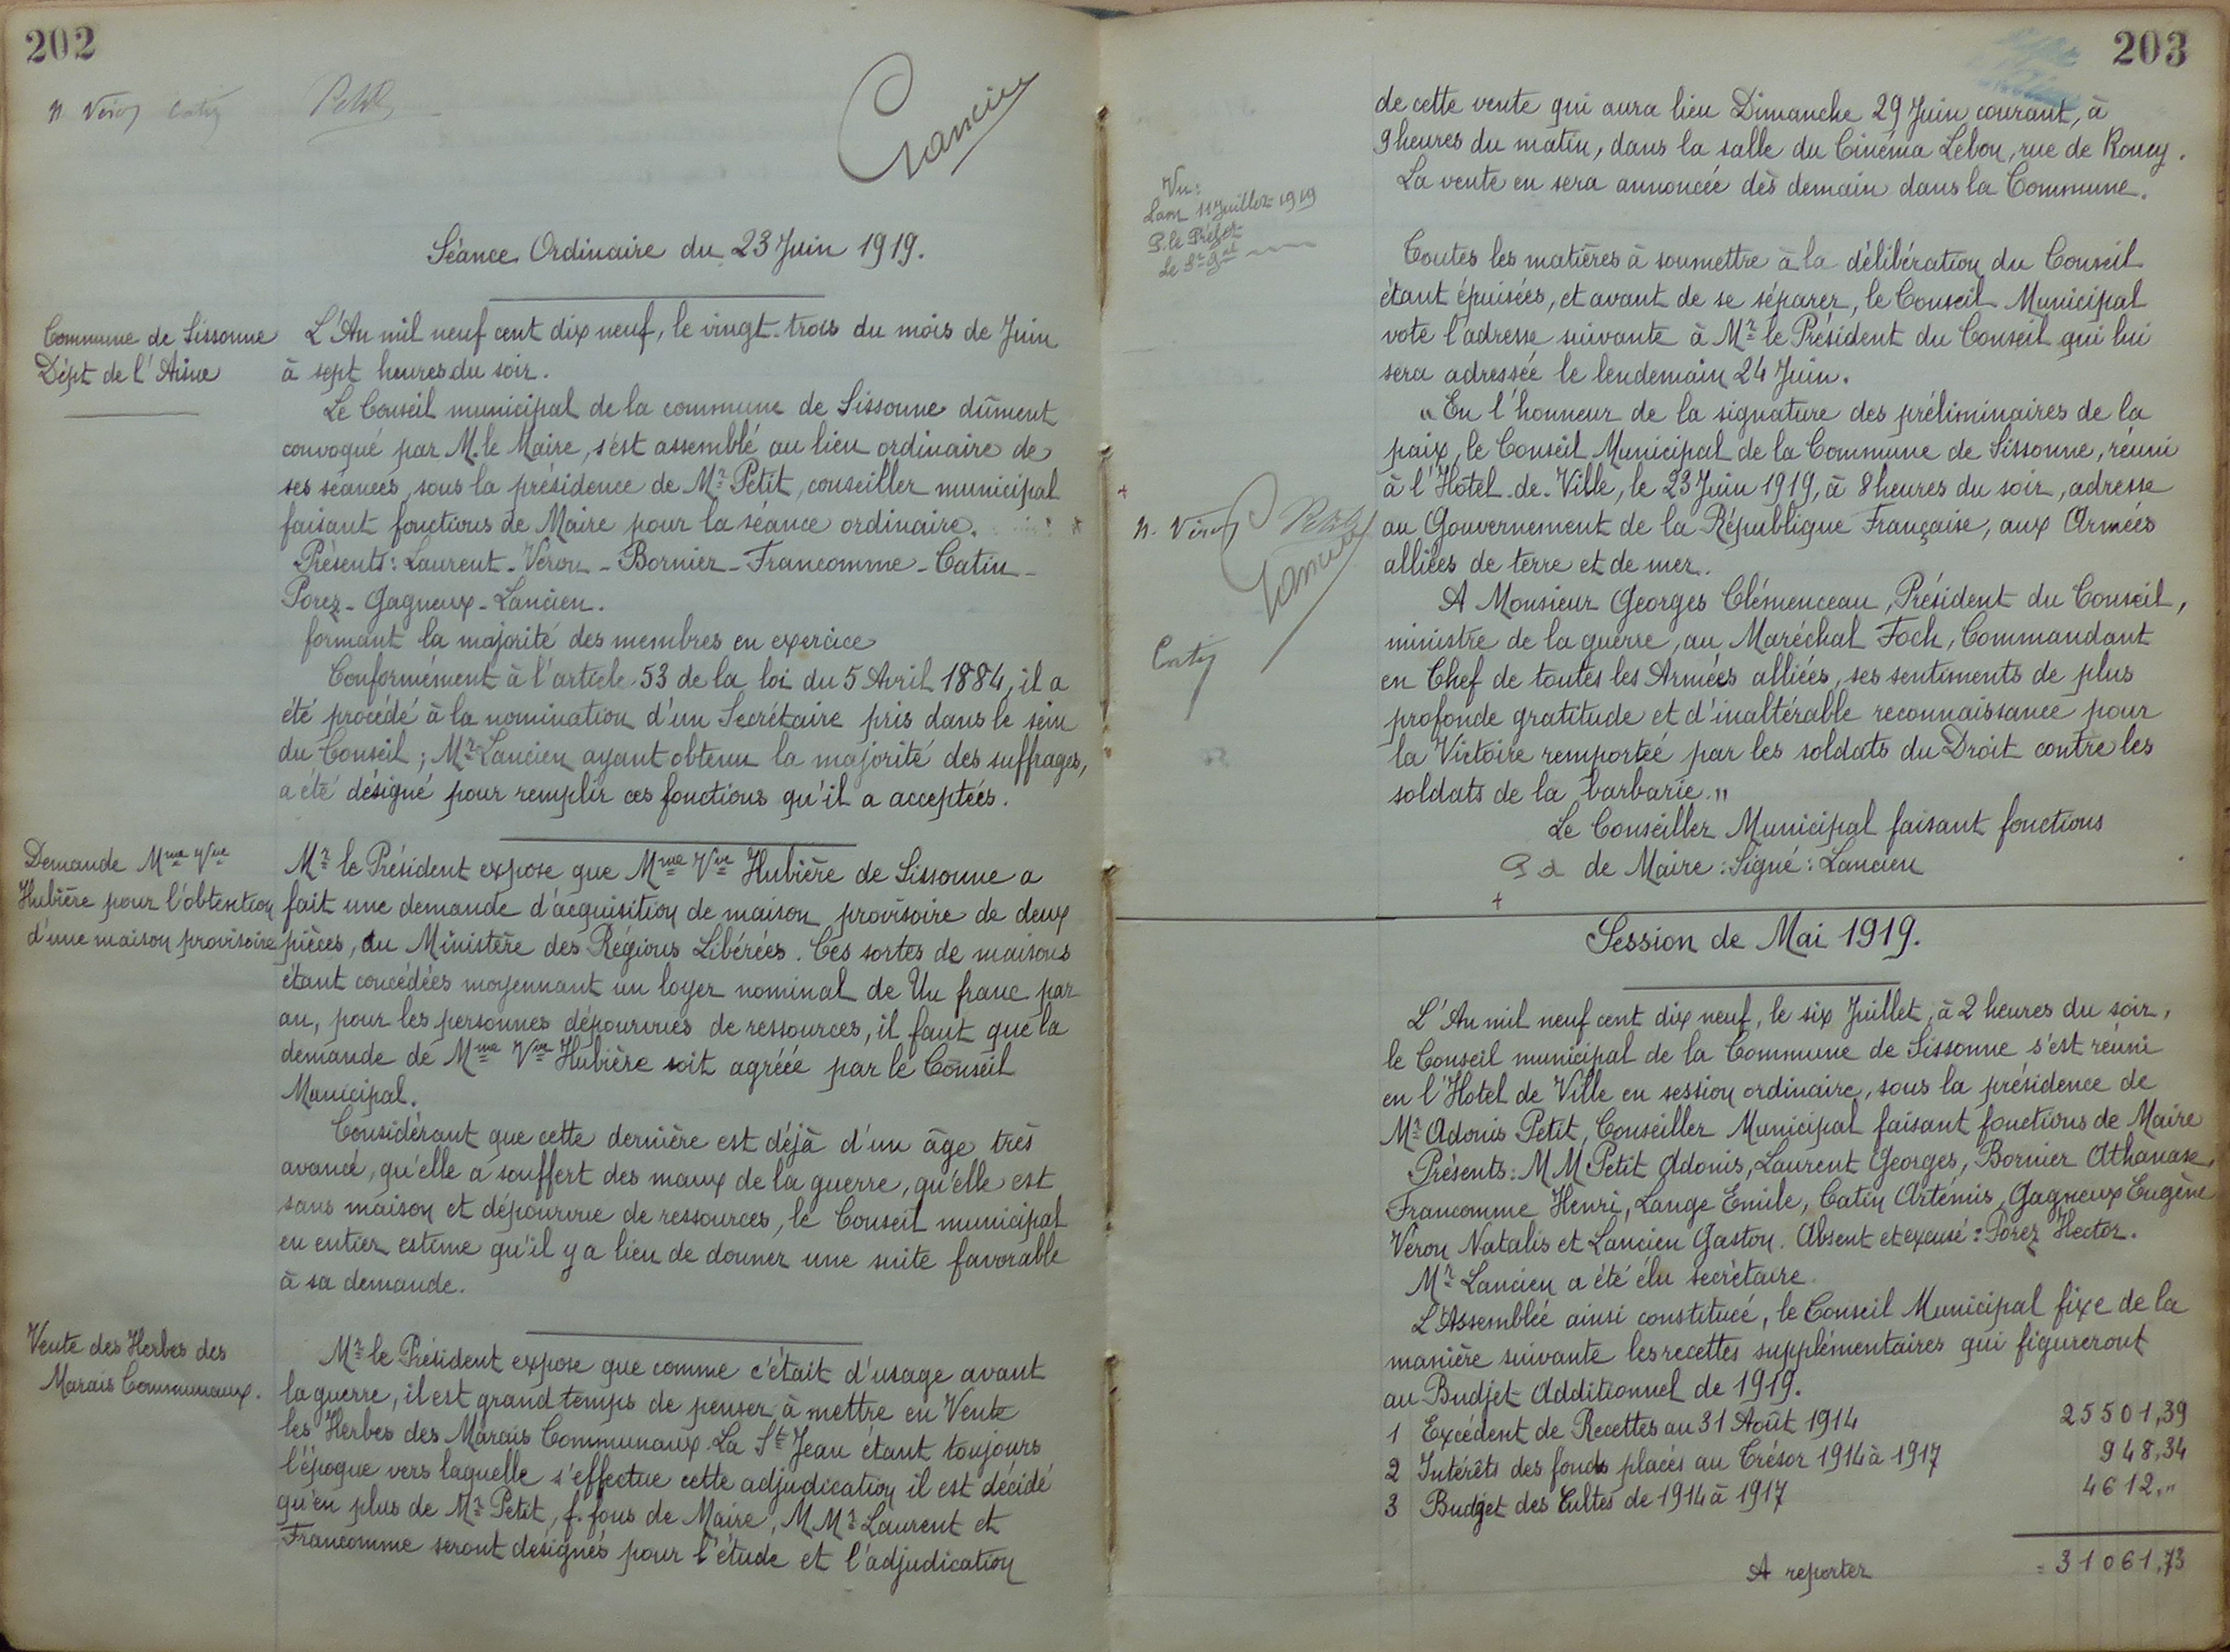 202
N. Véron Catin Petit
Lancien
Séance Ordinaire du 23 Juin 1919.
Commune de Sissonne
Dépt de l'Aisne
L'An mil neuf cent dix neuf, le vingt-trois du mois de Juin
à sept heures du soir.
Le Conseil municipal de la commune de Sissonne dûment
convoqué par M. le Maire, s'est assemblé au lieu ordinaire de
ses séances, sous la présidence de Mr Petit, conseiller municipal
faisant fonctions de Maire pour la séance ordinaire.
Présents : Laurent - Véron - Bornier - Francomme - Catin -
Porez - Gagneux - Lancien.
formant la majorité des membres en exercice
Conformément à l'article 53 de la loi du 5 Avril 1884, il a
été procédé à la nomination d'un Secrétaire pris dans le sein
du Conseil ; Mr Lancien ayant obtenu la majorité des suffrages,
a été désigné pour remplir ces fonctions qu'il a acceptées.
Demande Mme Vve
Hubière pour l'obtention
d'une maison provisoire
Mr le Président expose que Mme Vve Hubière de Sissonne a
fait une demande d'acquisition de maison provisoire de deux
pièces, du Ministère des Régions Libérées. Ces sortes de maisons
étant concédées moyennant un loyer nominal de Un franc par
an, pour les personnes dépourvues de ressources, il faut que la
demande de Mme Vve Hubière soit agréée par le Conseil
Municipal.
Considérant que cette dernière est déjà d'un âge très
avancé, qu'elle a souffert des maux de la guerre, qu'elle est
sans maison et dépourvue de ressources, le Conseil municipal
en entier estime qu'il y a lieu de donner une suite favorable
à sa demande.
Vente des Herbes des
Marais Communaux.
Mr le Président expose que comme c'était d'usage avant
la guerre, il est grand temps de penser à mettre en Vente
les Herbes des Marais Communaux. La St Jean étant toujours
l'époque vers laquelle s'effectue cette adjudication il est décidé
qu'en plus de Mr Petit, f. fons de Maire, M Mrs Laurent et
Francomme seront désignés pour l'étude et l'adjudication
203
de cette vente qui aura lieu Dimanche 29 Juin courant, à
9 heures du matin, dans la salle du Cinéma Lebon, rue de Roucy.
La vente en sera annoncée dès demain dans la Commune.
Vu :
Laon 11 Juillet 1919
P. le Préfet
Le Sre Gal
Toutes les matières à soumettre à la délibération du Conseil
étant épuisées, et avant de se séparer, le Conseil Municipal
vote l'adresse suivante à Mr le Président du Conseil qui lui
sera adressée le lendemain 24 Juin.
"En l'honneur de la signature des préliminaires de la
paix, le Conseil Municipal de la Commune de Sissonne, réuni
à l'Hôtel-de-Ville, le 23 Juin 1919, à 8 heures du soir, adresse
au Gouvernement de la République Française, aux Armées
alliées de terre et de mer.
A Monsieur Georges Clémenceau, Président du Conseil,
ministre de la guerre, au Maréchal Foch, Commandant
en Chef de toutes les Armées alliées, ses sentiments de plus
profonde gratitude et d'inaltérable reconnaissance pour
la Victoire remportée par les soldats du Droit contre les
soldats de la barbarie."
N. Véron Petit
Lancien
Catin
Le Conseiller Municipal faisant fonctions
de Maire : Signé : Lancien
Session de Mai 1919.
L'An mil neuf cent dix neuf, le six Juillet, à 2 heures du soir,
le Conseil municipal de la Commune de Sissonne s'est réuni
en l'Hotel de Ville en session ordinaire, sous la présidence de
Mr Adonis Petit, Conseiller Municipal faisant fonctions de Maire
Présents : M M Petit Adonis, Laurent Georges, Bornier Athanase,
Francomme Henri, Lange Emile, Catin Artémis, Gagneux Eugène
Véron Natalis et Lancien Gaston. Absent et excusé : Porez Hector.
Mr Lancien a été élu secrétaire.
L'Assemblée ainsi constituée, le Conseil Municipal fixe de la
manière suivante les recettes supplémentaires qui figureront
au Budjet Additionnel de 1919.
1 Excédent de Recettes au 31 Août 1914 25501,39
2 Intérêts des fonds placés au Trésor 1914 à 1917 948,34
3 Budget des Cultes de 1914 à 1917 4612,"
A reporter = 31061,73